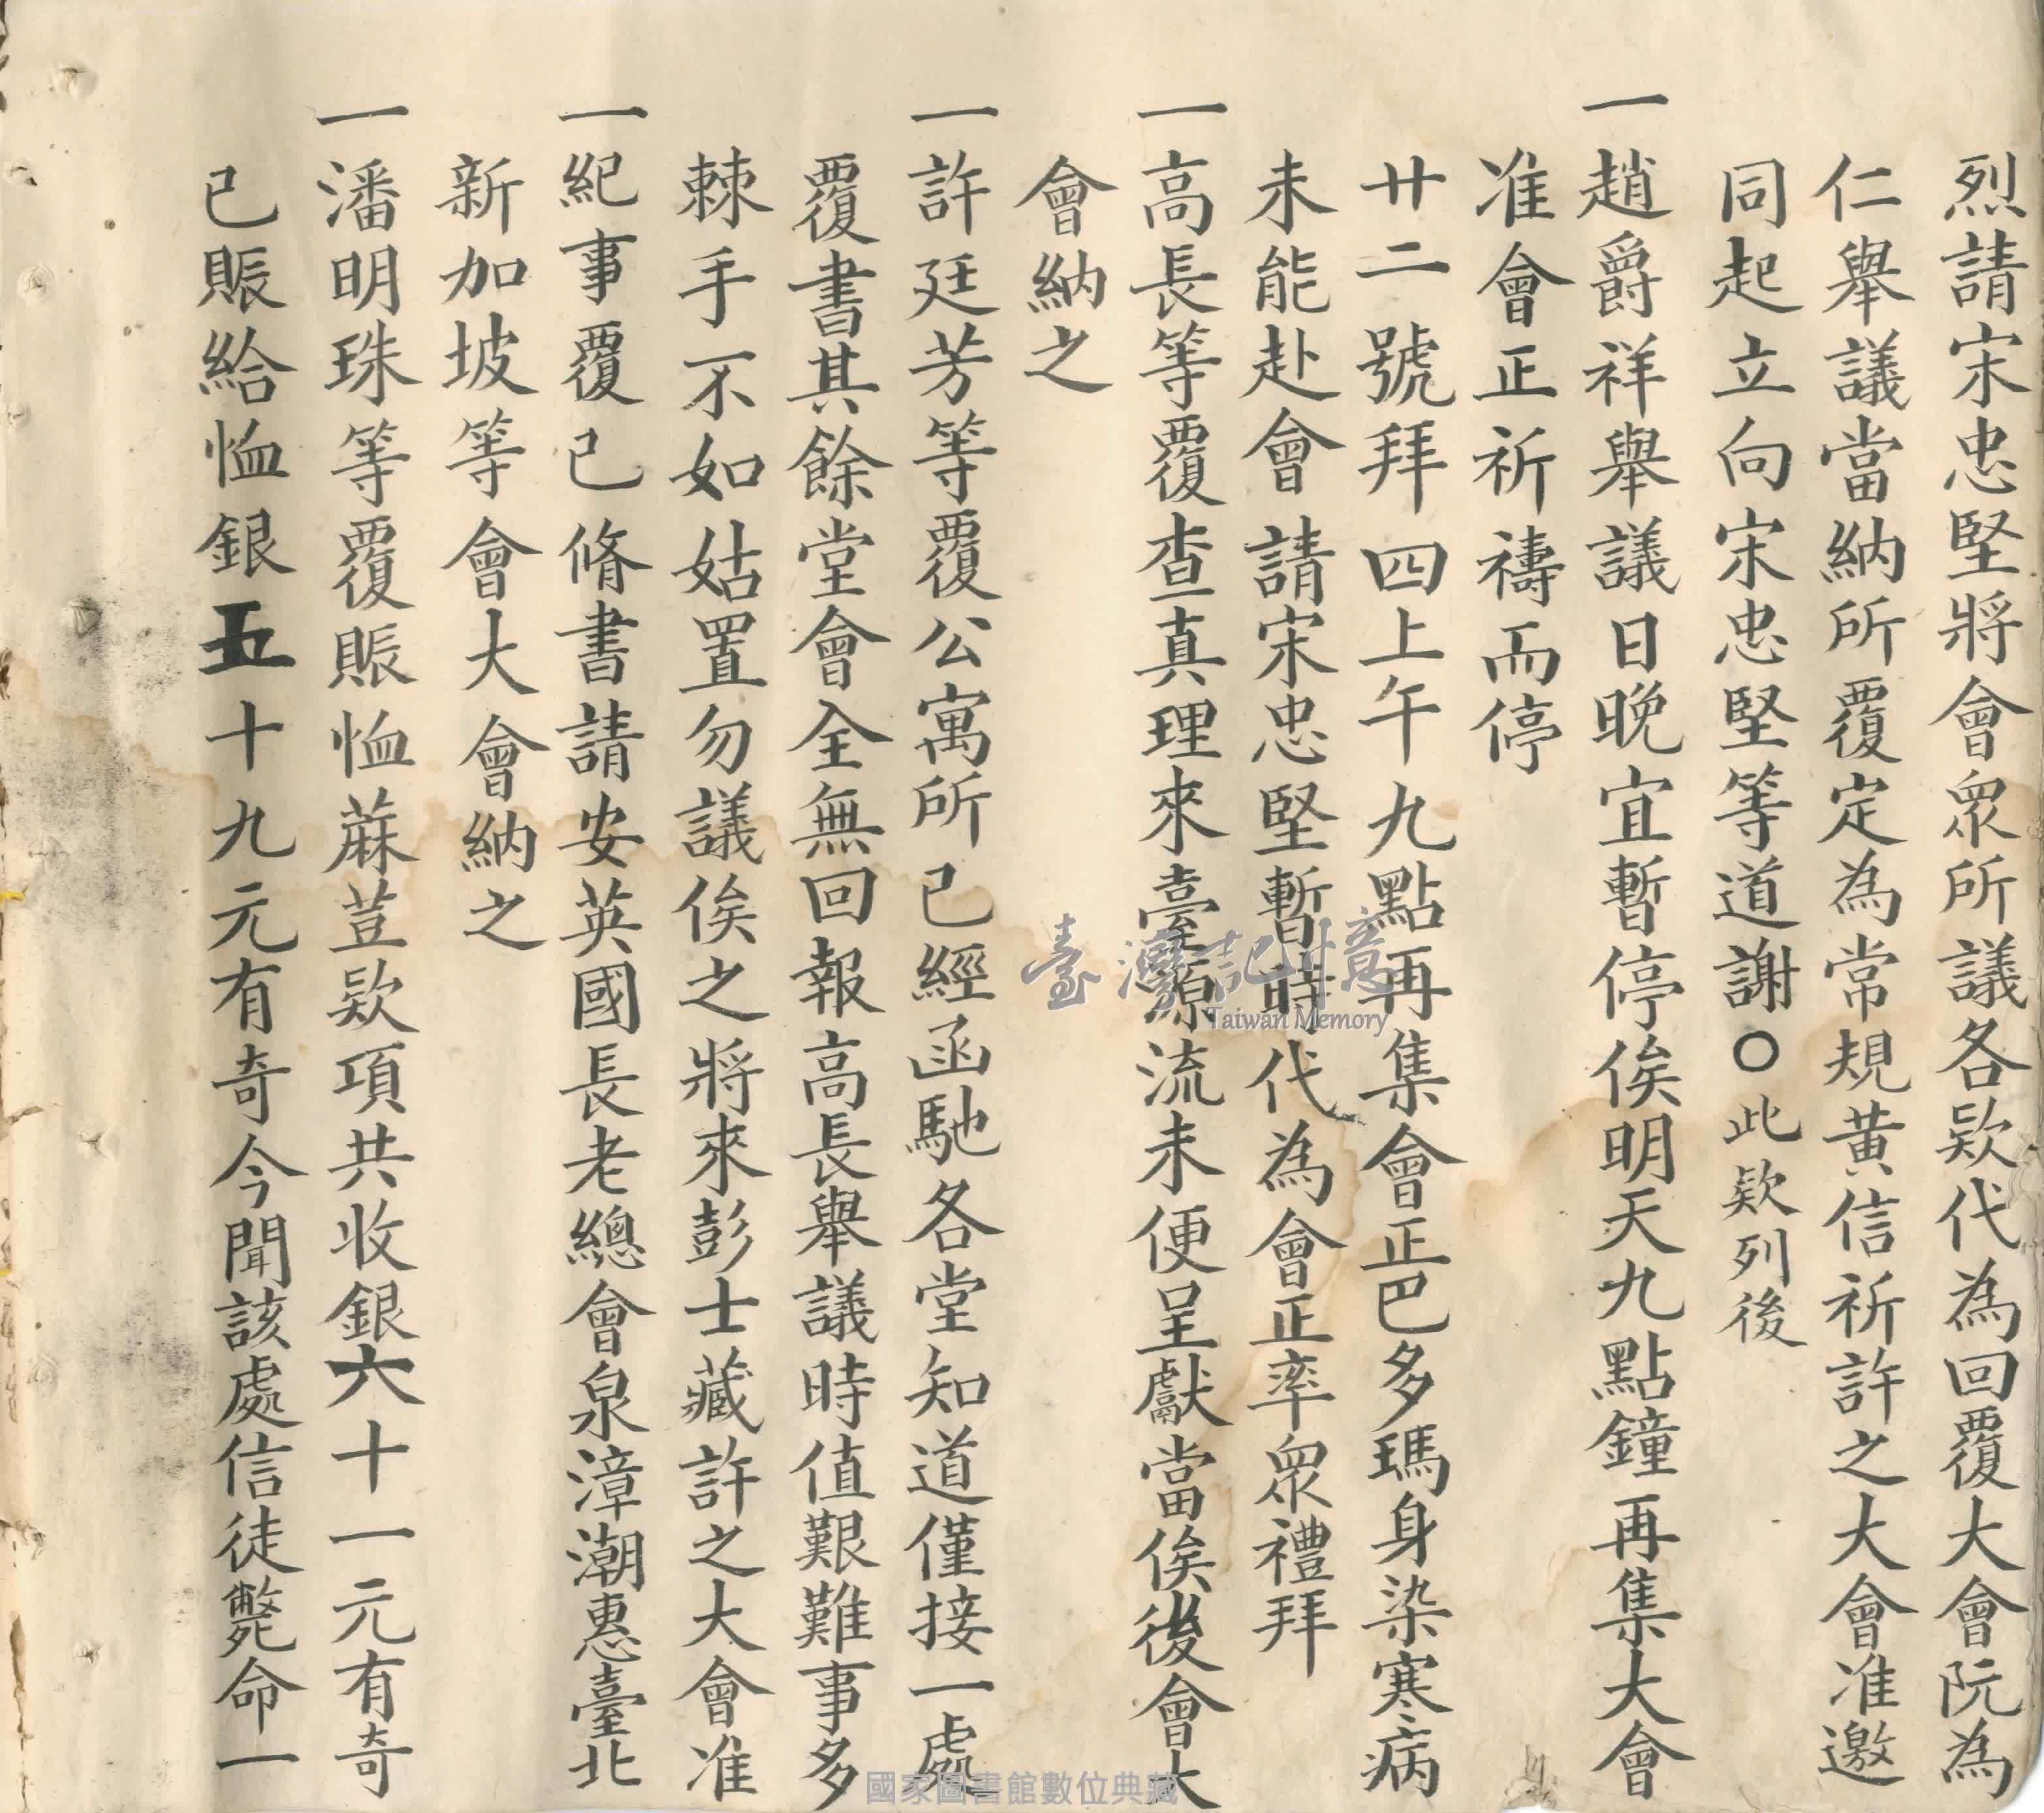 烈請宋忠堅將會眾所議各欵代為回覆大會阮為
仁舉議當納所覆定為常規黃信祈許之大會准邀
同起立向宋忠堅等道謝○此欵列後
一趙爵祥舉議日晚宜暫停俟明天九點鐘再集大會
准會正祈禱而停
廿二號拜四上午九點再集會正巴多瑪身染寒病
未能赴會請宋忠堅暫時代為會正率眾禮拜
一高長等覆查真理來臺源流未便呈獻當俟後會大
會納之
一許廷芳等覆公寓所已經函馳各堂知道僅接一處
覆書其餘堂會全無回報高長舉議時值艱難事多
棘手不如姑置勿議俟之將來彭士藏許之大會准
一紀事覆已脩書請安英國長老總會泉漳潮惠臺北
新加坡等會大會納之
一潘明珠等覆賑恤蔴荳欵項共收銀六十一元有奇
已賬給恤銀五十九元有奇今聞該處信徒斃命一
臺灣記憶
Taiwan Memory
國家圖書館數位典藏